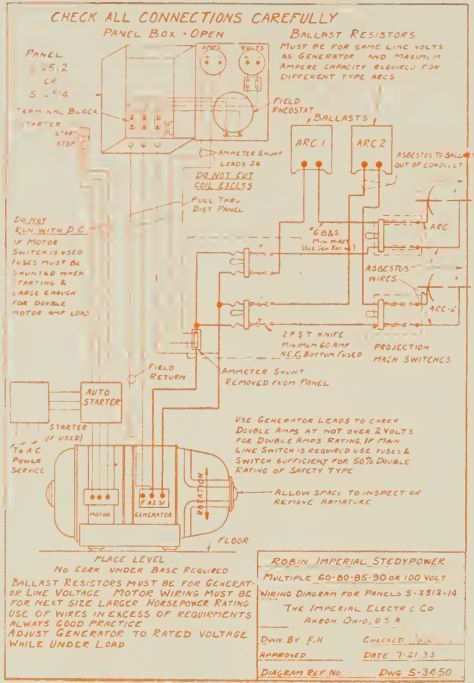 CHECK ALL CONNECTIONS CAREFULLY
PANEL BOX - OPEN
BALLAST RESISTORS
MUST BE FOR SAME LINE VOLTS
AS GENERATOR AND MAXIMUM
AMPERE CAPACITY REQUIRED FOR
DIFFERENT TYPE ARCS
PANEL
OR
AMPS
VOLTS
TERMINAL BLOCK
STARTER
START
STOP
FIELD
RHEOSTAT
BALLASTS
ARC 1
ARC 2
AMMETER SHUNT
LEADS 24
DO NOT CUT
COIL EXCESS
ASBESTOS TO BALLAST
OUT OF CONDUIT
PULL THRU
DIST PANEL
DO NOT
RUN WITH D.C.
IF MOTOR
SWITCH IS USED
FUSES MUST BE
SHUNTED WHEN
STARTING &
LARGE ENOUGH
FOR DOUBLE
MOTOR AMP LOAD
#6 B&S
MIN WIRES
ARC
ASBESTUS
WIRES
ARC-2
2 P S T KNIFE
MINIMUM 60 AMP
N.E.C. BOTTOM FUSED
PROJECTION
MACH SWITCHES
FIELD
RETURN
AMMETER SHUNT
REMOVED FROM PANEL
AUTO
STARTER
STARTER
(IF USED)
TO A C
POWER
SERVICE
USE GENERATOR LEADS TO CARRY
DOUBLE AMPS AT NOT OVER 2 VOLTS
FOR DOUBLE AMPS RATING. IF MAIN
LINE SWITCH IS REQUIRED USE FUSES &
SWITCH SUFFICIENT FOR 50% DOUBLE
RATING OF SAFETY TYPE
MOTOR
GENERATOR
ROTATION
ALLOW SPACE TO INSPECT OR
REMOVE ARMATURE
FLOOR
PLACE LEVEL
NO CORK UNDER BASE REQUIRED
BALLAST RESISTORS MUST BE FOR GENERAT-
OR LINE VOLTAGE MOTOR WIRING MUST BE
FOR NEXT SIZE LARGER HORSEPOWER RATING
USE OF WIRES IN EXCESS OF REQUIRMENTS
ALWAYS GOOD PRACTICE
ADJUST GENERATOR TO RATED VOLTAGE
WHILE UNDER LOAD
ROBIN IMPERIAL STEDYPOWER
MULTIPLE 60-80-85-90 OR 100 VOLT
WIRING DIAGRAM FOR PANELS S-2512-14
THE IMPERIAL ELECTRIC CO
AKRON, OHIO, U S A
DWN. BY F.H CHECKED
APPROVED DATE 7-21 33
DIAGRAM REF NO DWG S-3450